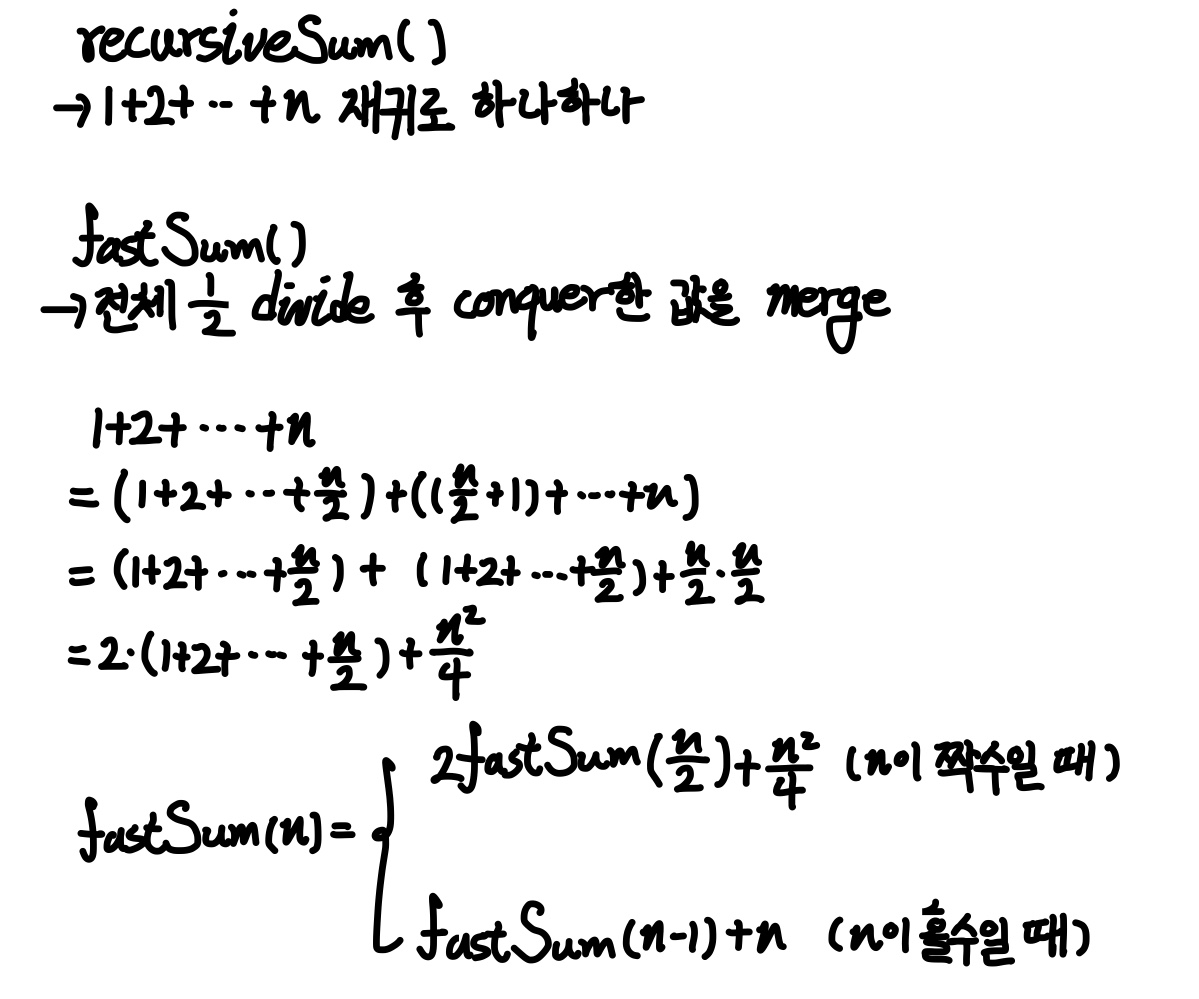 recursiveSum()
→ 1+2+ ·· +n 재귀로 하나하나
fastSum()
→ 전체 1/2 divide 후 conquer한 값을 merge
1+2+ ··· +n
= (1+2+ ··· + n/2) + ((n/2 +1) + ··· +n)
= (1+2+ ··· + n/2) + (1+2+ ··· + n/2) + n/2 · n/2
= 2·(1+2+ ··· + n/2) + n²/4
2fastSum(n/2) + n²/4 (n이 짝수일 때)
fastSum(n) = {
fastSum(n-1)+n (n이 홀수일 때)